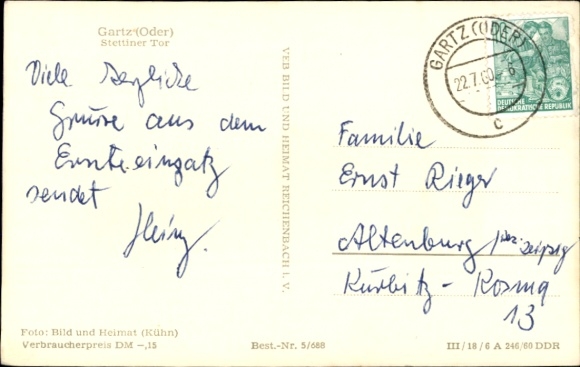 Gartz (Oder)
Stettiner Tor
Viele herzliche
Grüsse aus dem
Ernteeinsatz
sendet
Heinz.
VEB BILD UND HEIMAT REICHENBACH i. V.
GARTZ (ODER)
22.7.60
c
DEUTSCHE
DEMOKRATISCHE REPUBLIK
5
Familie
Ernst Rieger
Altenburg /Bez. Leipzig
Kürbitz - Kosma
13
Foto: Bild und Heimat (Kühn)
Verbraucherpreis DM -,15
Best.-Nr. 5/688
III/18/6 A 246/60 DDR